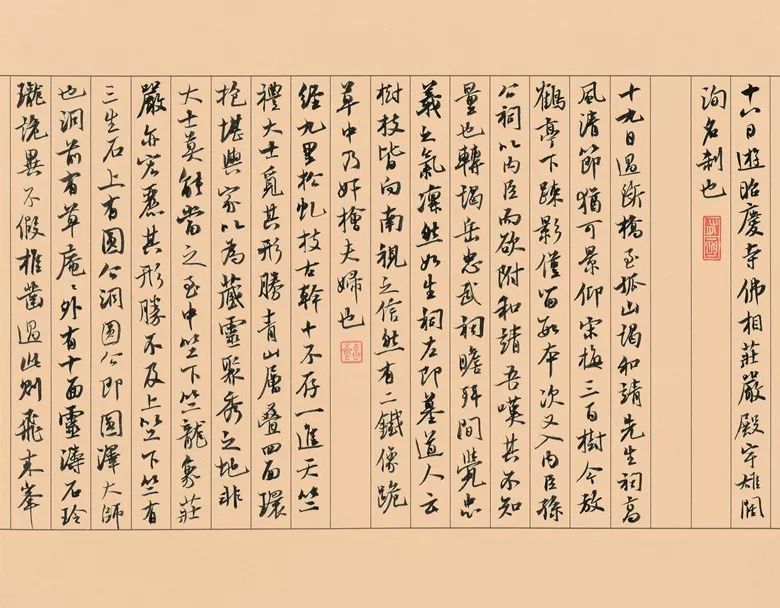 十八日遊昭慶寺佛相莊嚴殿宇雄闊
洵名剎也
十九日過斷橋至孤山謁和靖先生祠高
風清節猶可景仰宋梅三百樹今放
鶴亭下疎影僅留數本次又入內臣孫
公祠以內臣而欲附和靖吾嘆其不知
量也轉謁岳忠武祠瞻拜間覺忠
義之氣凜然如生祠左即墓道人云
樹枝皆向南視之信然有二鐵像跪
草中乃奸檜夫婦也
經九里松虬枝古幹十不存一進天竺
禮大士覓其形勝青山層疊四面環
抱堪輿家以為藏靈聚秀之地非
大士莫能當之至中竺下竺龍象莊
嚴亦宏麗其形勝不及上竺下竺有
三生石上有圓公洞圓公即圓澤大師
也洞前有草庵庵外有十面靈濤石玲
瓏詭異不假椎鑿過此則飛來峯